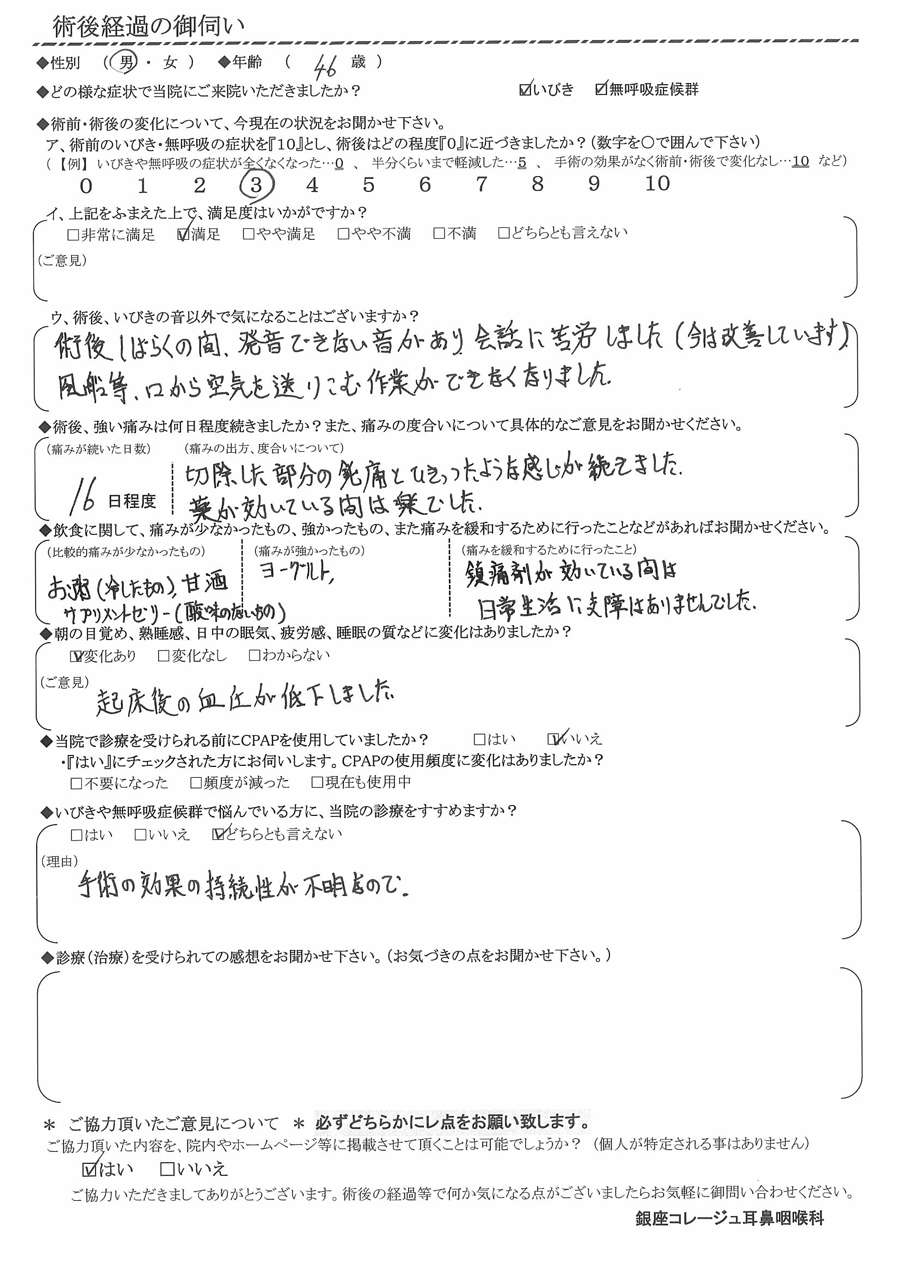 術後経過の御伺い
◆性別 （ 男 ・ 女 ） ◆年齢 （ 46 歳 ）
◆どの様な症状で当院にご来院いただきましたか？ ☑いびき ☑無呼吸症候群
◆術前・術後の変化について、今現在の状況をお聞かせ下さい。
ア、術前のいびき・無呼吸の症状を『10』とし、術後はどの程度『0』に近づきましたか？（数字を○で囲んで下さい）
（ 【例】 いびきや無呼吸の症状が全くなくなった…0 、 半分くらいまで軽減した…5 、 手術の効果がなく術前・術後で変化なし…10 など）
0 1 2 3 4 5 6 7 8 9 10
イ、上記をふまえた上で、満足度はいかがですか？
□非常に満足 ☑満足 □やや満足 □やや不満 □不満 □どちらとも言えない
（ご意見）
ウ、術後、いびきの音以外で気になることはございますか？
術後しばらくの間、発音できない音があり、会話に苦労しました（今は改善しています）
風船等、口から空気を送りこむ作業ができなくなりました。
◆術後、強い痛みは何日程度続きましたか？また、痛みの度合いについて具体的なご意見をお聞かせください。
（痛みが続いた日数） （痛みの出方、度合いについて）
切除した部分の鈍痛とひきつったような感じが続きました。
16 日程度
薬が効いている間は楽でした。
◆飲食に関して、痛みが少なかったもの、強かったもの、また痛みを緩和するために行ったことなどがあればお聞かせください。
（比較的痛みが少なかったもの） （痛みが強かったもの） （痛みを緩和するために行ったこと）
お粥（冷したもの）、甘酒 ヨーグルト、 鎮痛剤が効いている間は
サプリメントゼリー（酸味のないもの） 日常生活に支障はありませんでした。
◆朝の目覚め、熟睡感、日中の眠気、疲労感、睡眠の質などに変化はありましたか？
☑変化あり □変化なし □わからない
（ご意見）
起床後の血圧が低下しました。
◆当院で診療を受けられる前にCPAPを使用していましたか？ □はい ☑いいえ
・『はい』にチェックされた方にお伺いします。CPAPの使用頻度に変化はありましたか？
□不要になった □頻度が減った □現在も使用中
◆いびきや無呼吸症候群で悩んでいる方に、当院の診療をすすめますか？
□はい □いいえ ☑どちらとも言えない
（理由）
手術の効果の持続性が不明なので。
◆診療（治療）を受けられての感想をお聞かせ下さい。（お気づきの点をお聞かせ下さい。）
＊ ご協力頂いたご意見について ＊ 必ずどちらかにレ点をお願い致します。
ご協力頂いた内容を、院内やホームページ等に掲載させて頂くことは可能でしょうか？ （個人が特定される事はありません）
☑はい □いいえ
ご協力いただきましてありがとうございます。術後の経過等で何か気になる点がございましたらお気軽に御問い合わせください。
銀座コレージュ耳鼻咽喉科